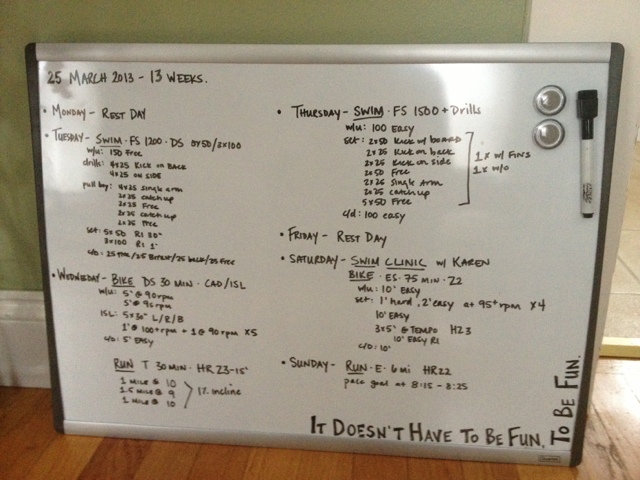 25 March 2013 - 13 Weeks.
• Monday - Rest Day
• Tuesday - Swim · FS 1200 · DS 6x50/3x100
w/u: 150 Free
drills: 4x25 Kick on Back
4x25 on side
pull buoy: 4x25 Single arm
2x25 catch up
2x25 Free
2x25 catch up
2x25 Free
set: 5x50 RI 30"
3x100 RI 1'
c/d: 25 Free/25 Breast/25 back/25 Free
• Wednesday - Bike DS 30 min · CAD/ISL
w/u: 5' @ 90 rpm
5' @ 95 rpm
ISL: 5x30" L/R/B
1' @ 100+ rpm + 1 @ 90 rpm x5
c/d: 5' easy
Run T 30 min · HR 23-15'
1 mile @ 10
1.5 mile @ 9
1 mile @ 10
1% incline
• Thursday - Swim · FS 1500 + Drills
w/u: 100 Easy
set: 2x50 Kick w/ board
2x25 Kick on back
2x25 Kick on side
2x50 Free
2x25 Single Arm
2x25 catch up
5x50 Free
1x w/ Fins
1x w/o
c/d: 100 easy
• Friday - Rest Day
• Saturday - Swim Clinic w/ Karen
Bike · ES · 75 min · Z2
w/u: 10' Easy
set: 1' hard, 2' easy at 95+ rpm x4
10' easy
3x5' @ Tempo HZ3
10' Easy RI
c/d: 10'
• Sunday - Run · E · 6 mi HR 22
pace goal at 8:15 - 8:25
It Doesn't Have To Be Fun.
To Be Fun.